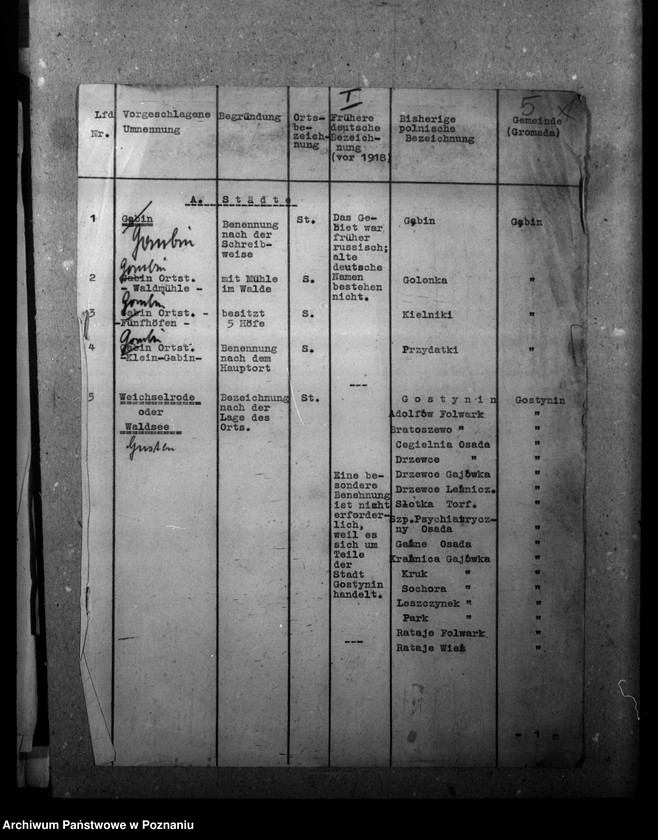 I
5
Lfd Nr.
Vorgeschlagene Umnennung
Begründung
Orts-be-zeich-nung
Frühere deutsche Bezeich-nung (vor 1918)
Bisherige polnische Bezeichnung
Gemeinde (Gromada)
A. Städte
1 Gąbin Benennung nach der Schreib-weise St. Gąbin Gąbin
Gombin
Das Ge-biet war früher russisch; alte deutsche Namen bestehen nicht.
Gombin
2 Gąbin Ortst. - Waldmühle - mit Mühle im Walde S. Golonka "
Gombin
3 Gąbin Ortst. - -Fünfhöfen - besitzt 5 Höfe S. Kielniki "
Gombin
4 Gąbin Ortst. -Klein-Gabin- Benennung nach dem Hauptort S. Przydatki "
---
5 Weichselrode oder Waldsee Bezeichnung nach der Lage des Orts. St. Gostynin Gostynin
Gusten
Adolfów Folwark "
Bratoszewo " "
Cegielnia Osada "
Drzewce " "
Drzewce Gajówka "
Drzewce Leśnicz. "
Słotka Torf. "
Szp.Psychiatrycz-ny Osada "
Gaśne Osada "
Kraśnica Gajówka "
Kruk " "
Sochora " "
Leszczynek " "
Park " "
Rataje Folwark "
Rataje Wieś "
Eine be-sondere Benennung ist nicht erforder-lich, weil es sich um Teile der Stadt Gostynin handelt.
---
- 1 -
Archiwum Państwowe w Poznaniu